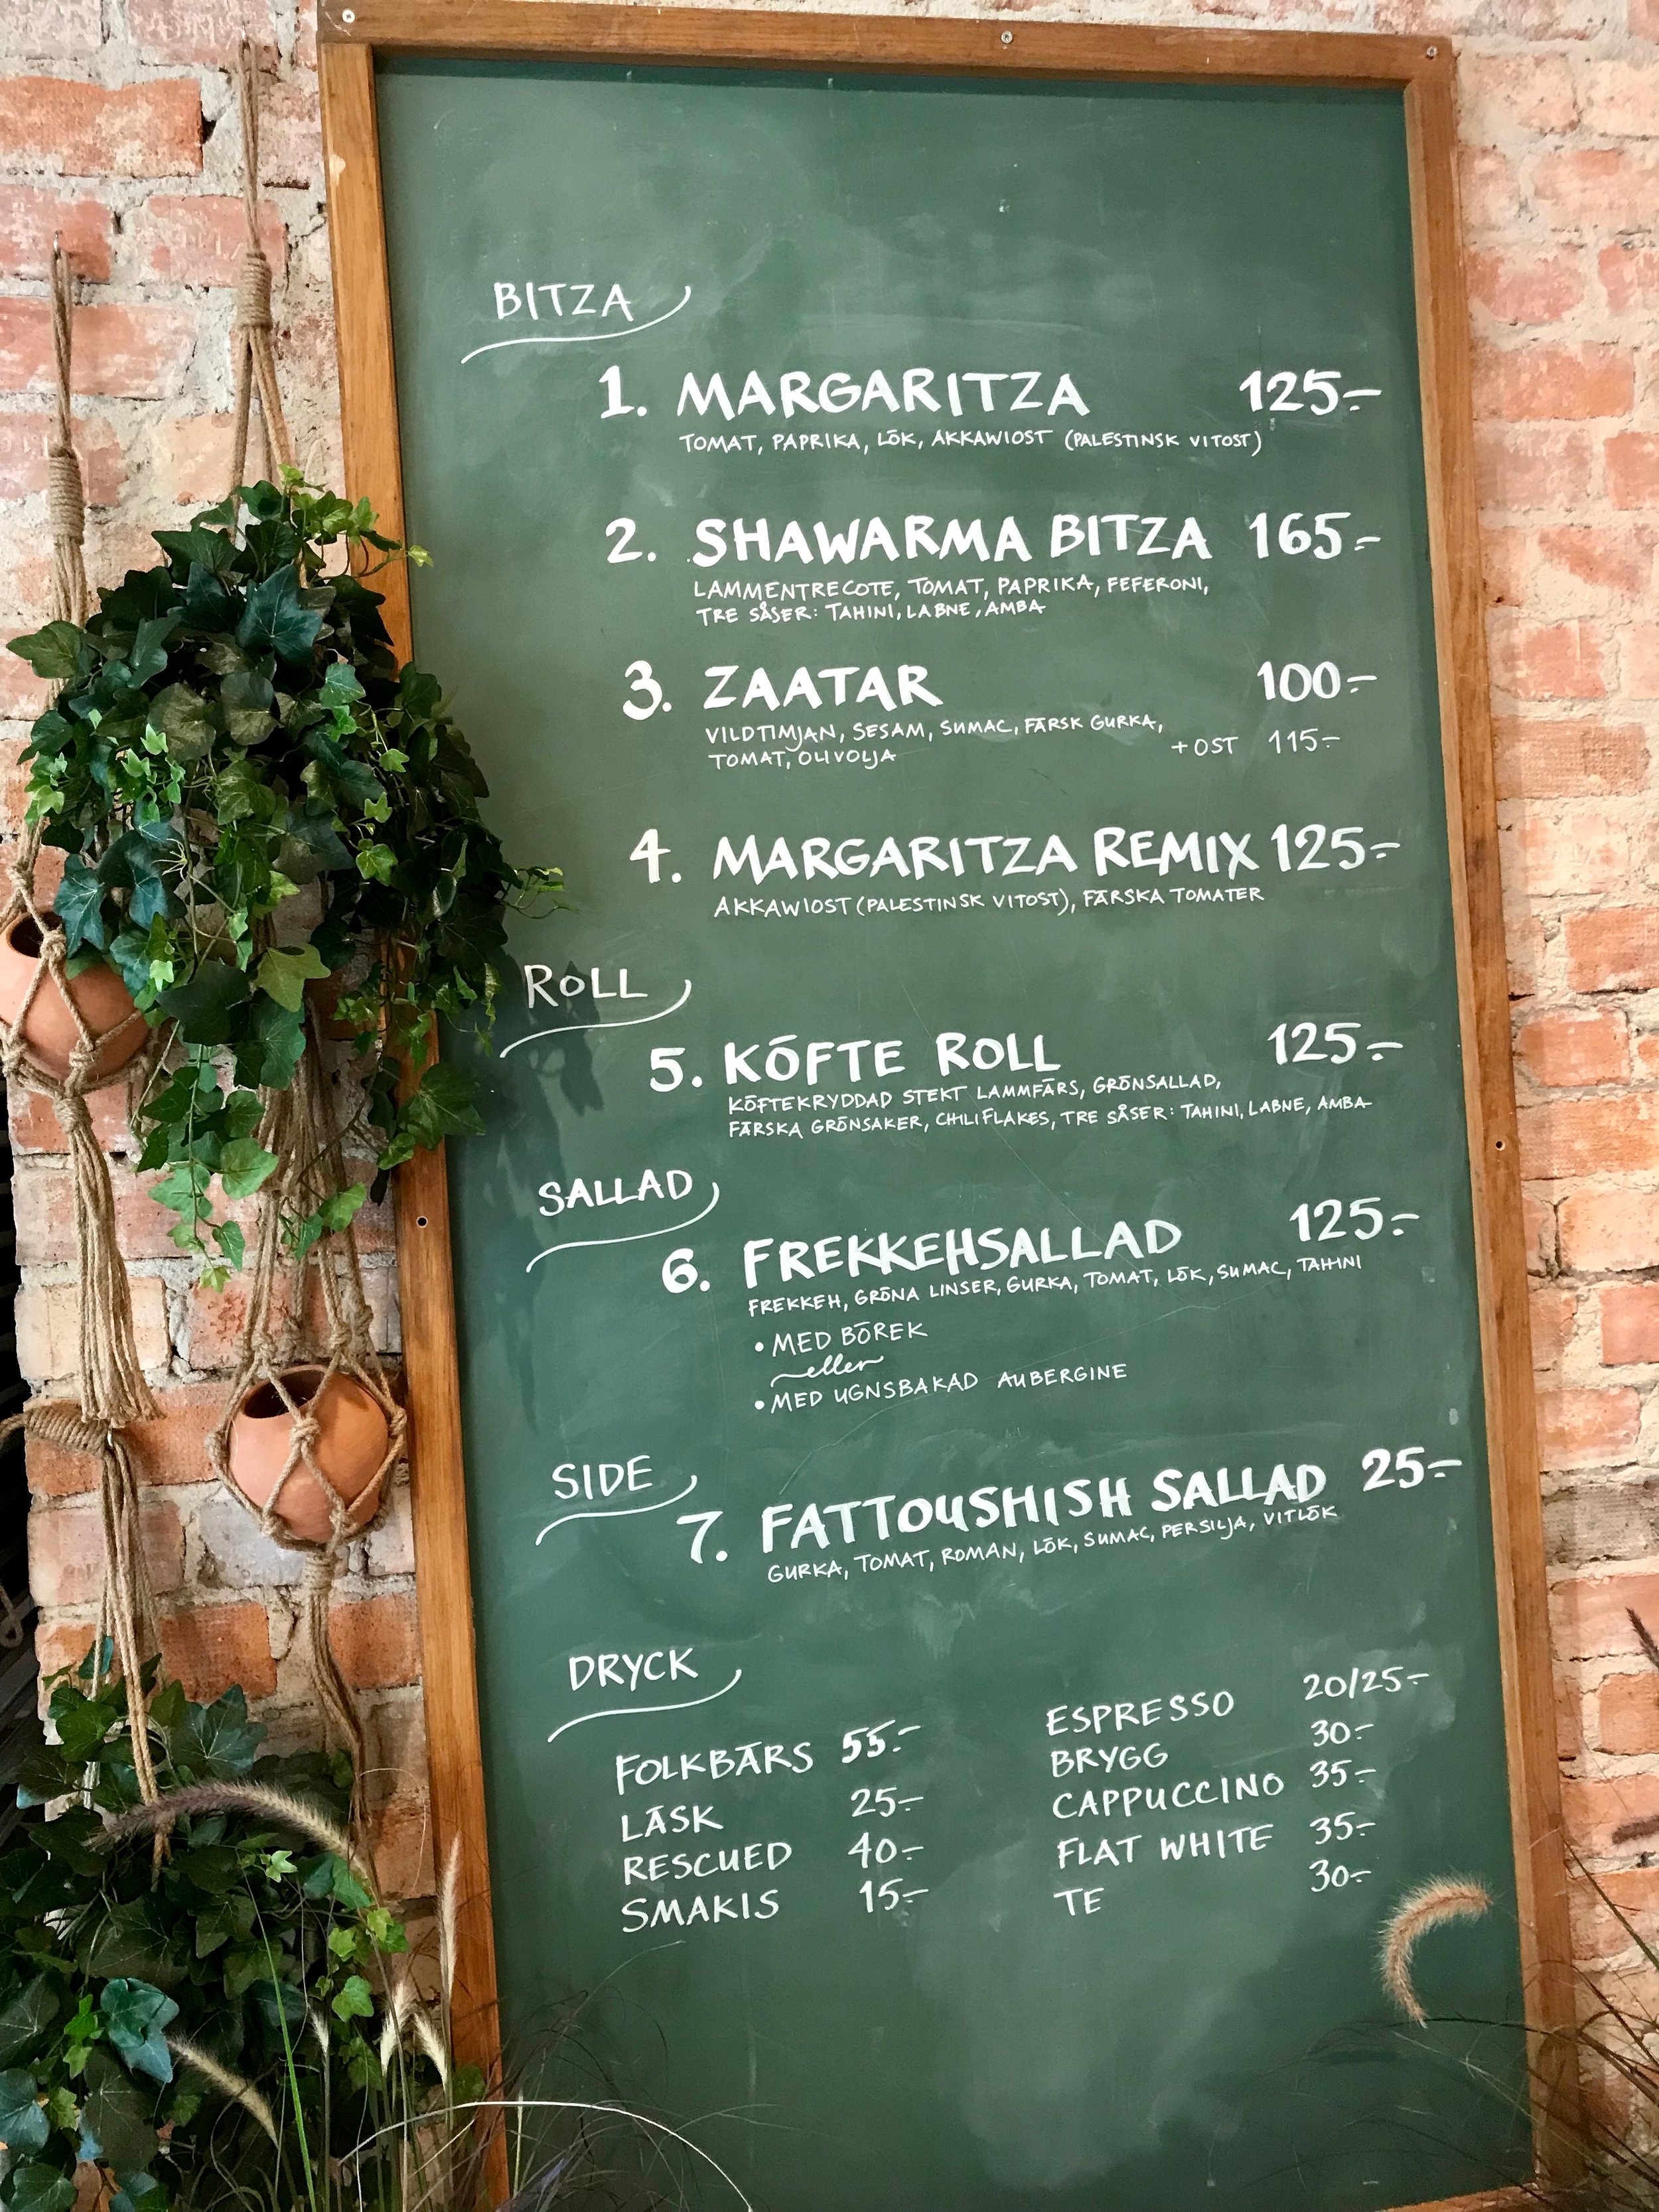 BITZA
1. MARGARITZA 125:-
TOMAT, PAPRIKA, LÖK, AKKAWIOST (PALESTINSK VITOST)
2. SHAWARMA BITZA 165:-
LAMMENTRECOTE, TOMAT, PAPRIKA, FEFERONI,
TRE SÅSER: TAHINI, LABNE, AMBA
3. ZAATAR 100:-
VILDTIMJAN, SESAM, SUMAC, FÄRSK GURKA,
TOMAT, OLIVOLJA
+ OST 115:-
4. MARGARITZA REMIX 125:-
AKKAWIOST (PALESTINSK VITOST), FÄRSKA TOMATER
ROLL
5. KÖFTE ROLL 125:-
KÖFTEKRYDDAD STEKT LAMMFÄRS, GRÖNSALLAD,
FÄRSKA GRÖNSAKER, CHILIFLAKES, TRE SÅSER: TAHINI, LABNE, AMBA
SALLAD
6. FREKKEHSALLAD 125:-
FREKKEH, GRÖNA LINSER, GURKA, TOMAT, LÖK, SUMAC, TAHINI
• MED BÖREK
eller
• MED UGNSBAKAD AUBERGINE
SIDE
7. FATTOUSHISH SALLAD 25:-
GURKA, TOMAT, ROMAN, LÖK, SUMAC, PERSILJA, VITLÖK
DRYCK
FOLKBÄRS 55:-
LÄSK 25:-
RESCUED 40:-
SMAKIS 15:-
ESPRESSO 20/25:-
BRYGG 30:-
CAPPUCCINO 35:-
FLAT WHITE 35:-
TE 30:-